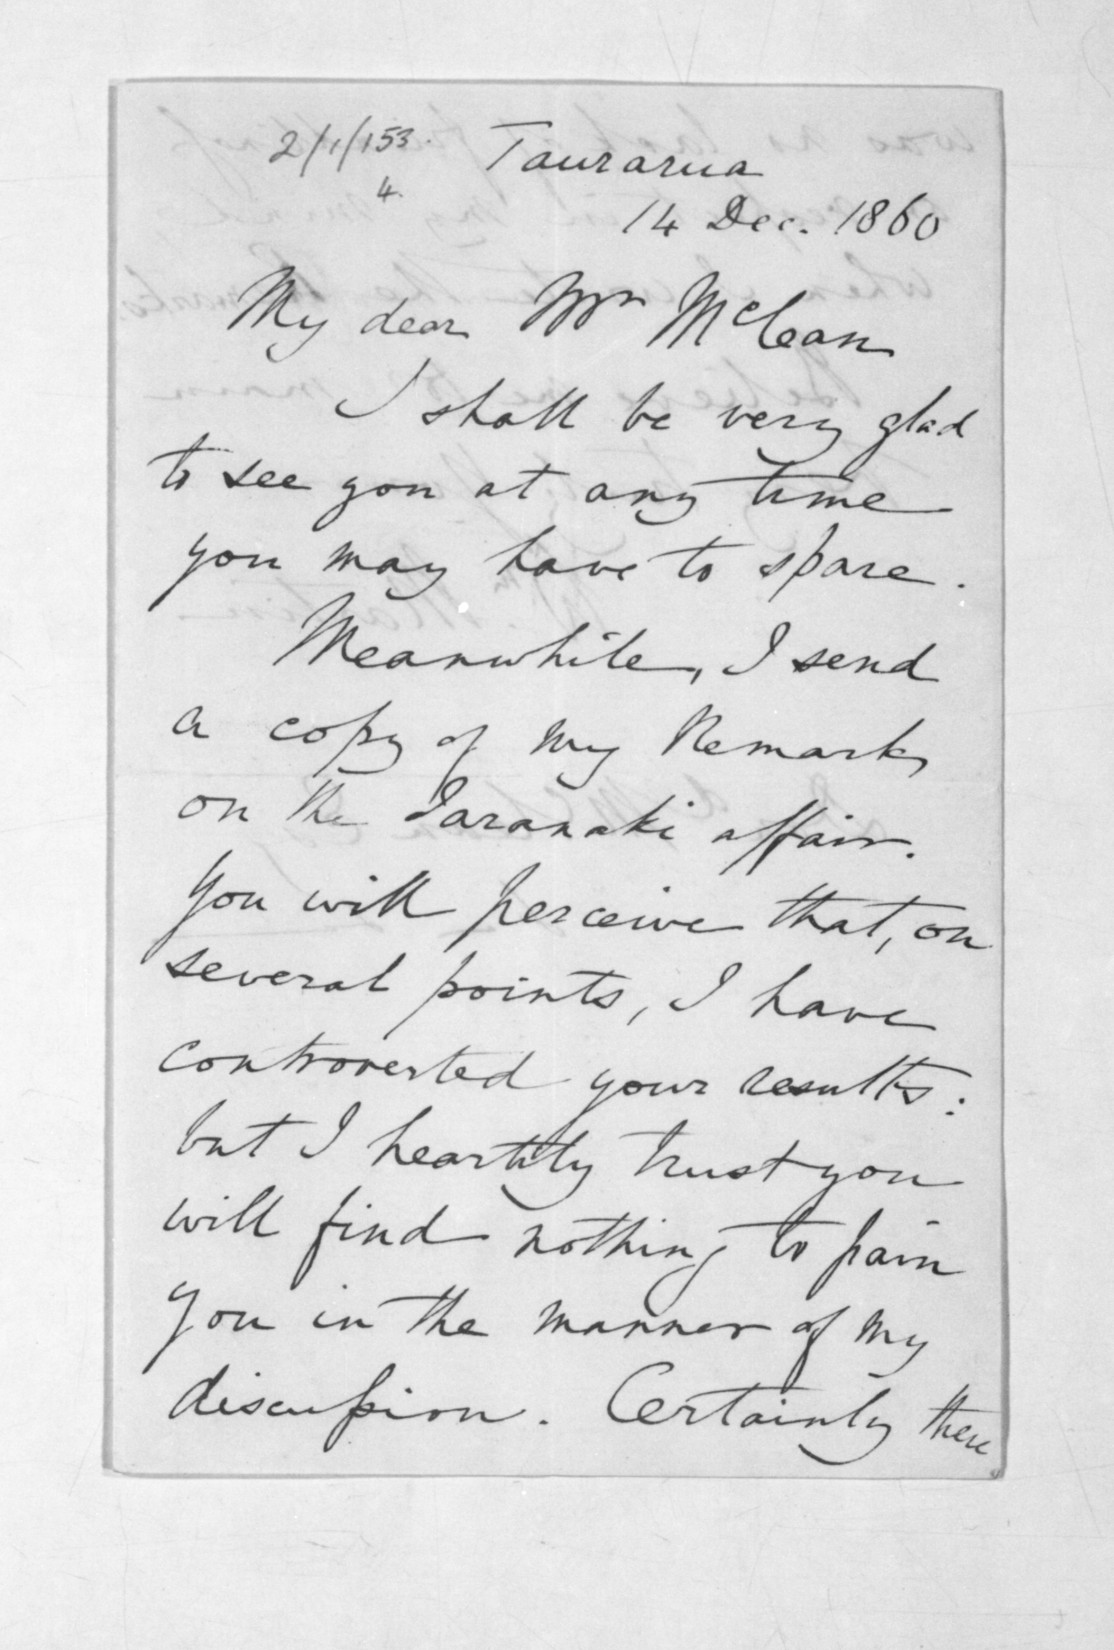 2/1/153.
4.
Taurarua
14 Dec. 1860
My dear Mr McLean
I shall be very glad
to see you at any time
you may have to spare.
Meanwhile, I send
a copy of my Remarks
on the Taranaki affair.
You will perceive that, on
several points, I have
controverted your results:
but I heartily trust you
will find nothing to pain
you in the manner of my
discussion. Certainly there